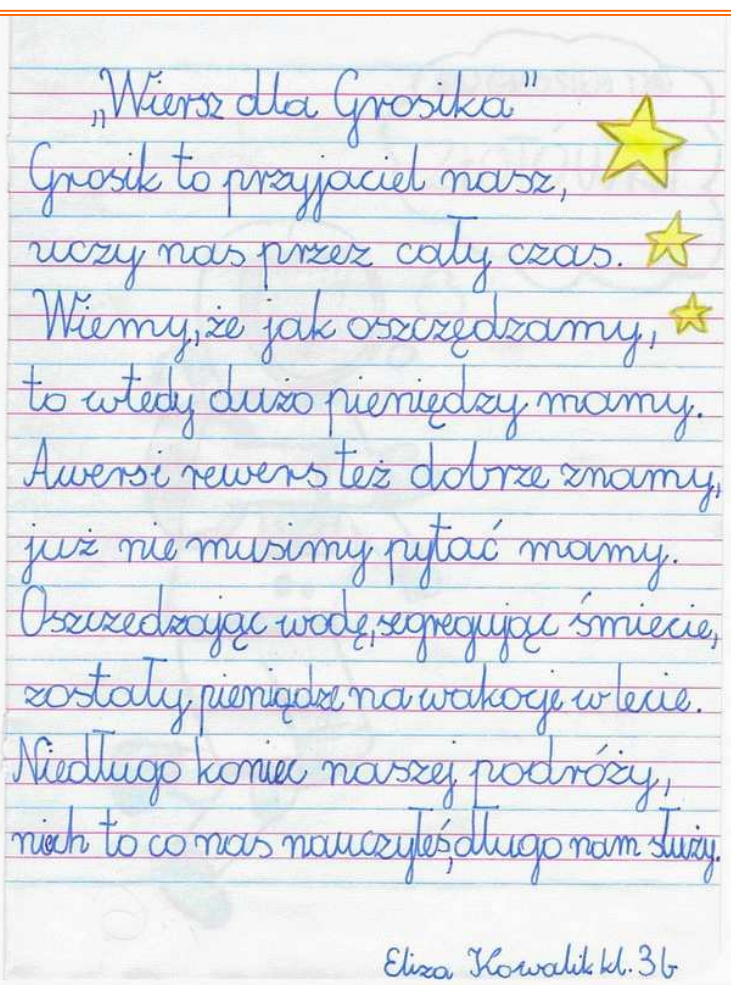 „Wiersz dla Grosika"
Grosik to przyjaciel nasz,
uczy nas przez cały czas.
Wiemy, że jak oszczędzamy,
to wtedy dużo pieniędzy mamy.
Awers i rewers też dobrze znamy,
już nie musimy pytać mamy.
Oszczedzając wodę, segregując śmiecie,
zostały pieniądze na wakacje w lecie.
Niedługo koniec naszej podróży,
niech to co nas nauczyłeś, długo nam służy.
Eliza Kowalik kl. 3b